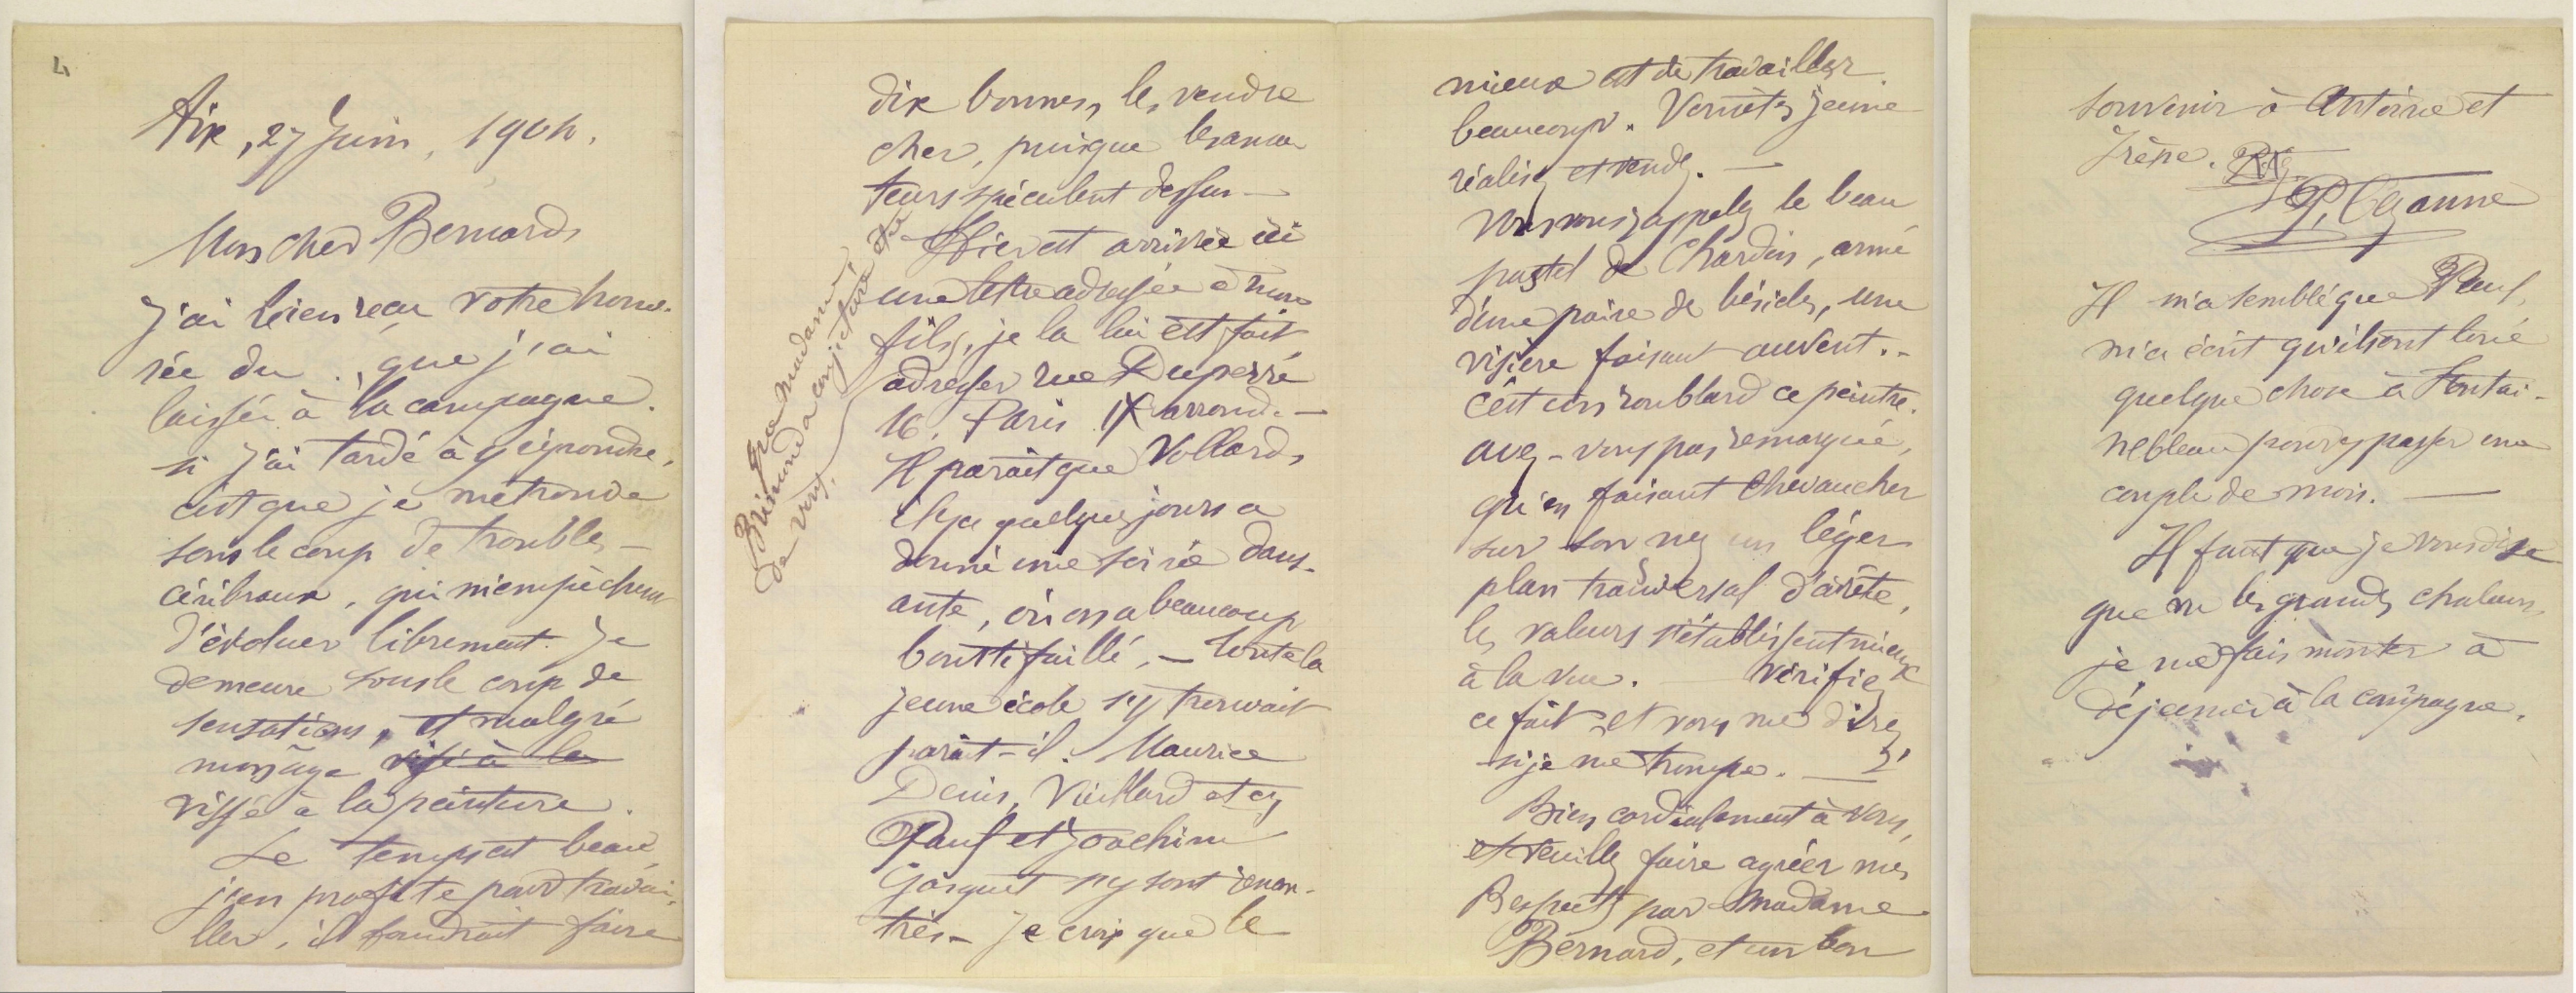 4
Aix, 27 Juin, 1904.
Mon cher Bernard,
J'ai bien reçu votre hono-
rée du .., que j'ai
laissée à la campagne.
si j'ai tardé à y répondre,
c'est que je me trouve
sous le coup de troubles
cérébraux, qui m'empêchent
d'évoluer librement. Je
demeure sous le coup de
sensations, et malgré
mon âge vissé à la
vissé à la peinture.
Le temps est beau,
j'en profite pour travai-
ller, il faudrait faire
dix bonnes, les vendre
cher, puisque les ama-
teurs spéculent dessus —
Hier est arrivée ici
une lettre adressée à mon
fils, je la lui ai fait
adresser rue Duperré
16, Paris IX arrond. —
Il parait que Vollard,
il y a quelques jours a
donné une soirée dans-
ante, où on a beaucoup
boustifaillé, — Toute la
jeune école s'y trouvait
parait-il. Maurice
Denis, Vuillard et cs
Paul et Joachim
Gasquet s'y sont renon-
trés — Je crois que le
que madame
Brémond a conjecturé être
de vous,
mieux est de travailler
beaucoup. Vous êtes jeune
réalisez et vendez. —
Vous vous rappelez le beau
pastel de Chardin, armé
d'une paire de bésicles, une
visière faisant auvent. -
C'est un roublard ce peintre.
avez-vous pas remarqué,
qu'en faisant chevaucher
sur son nez un léger
plan transversal d'arête,
les valeurs s'établissent mieux
à la vue. vérifiez
ce fait, et vous me direz
si je me trompe. —
Bien cordialement à vous,
et veuillez faire agréer mes
Respects par Madame
Bernard, et un bon
souvenir à Antoine et
Irène.
P. Cezanne
Il m'a semblé que Paul,
m'a écrit qu'ils ont loué
quelque chose à Fontai-
nebleau pour y passer une
couple de mois. —
Il faut que je vous dise
que vu les grandes chaleurs,
je me fais monter à
déjeuner à la campagne.